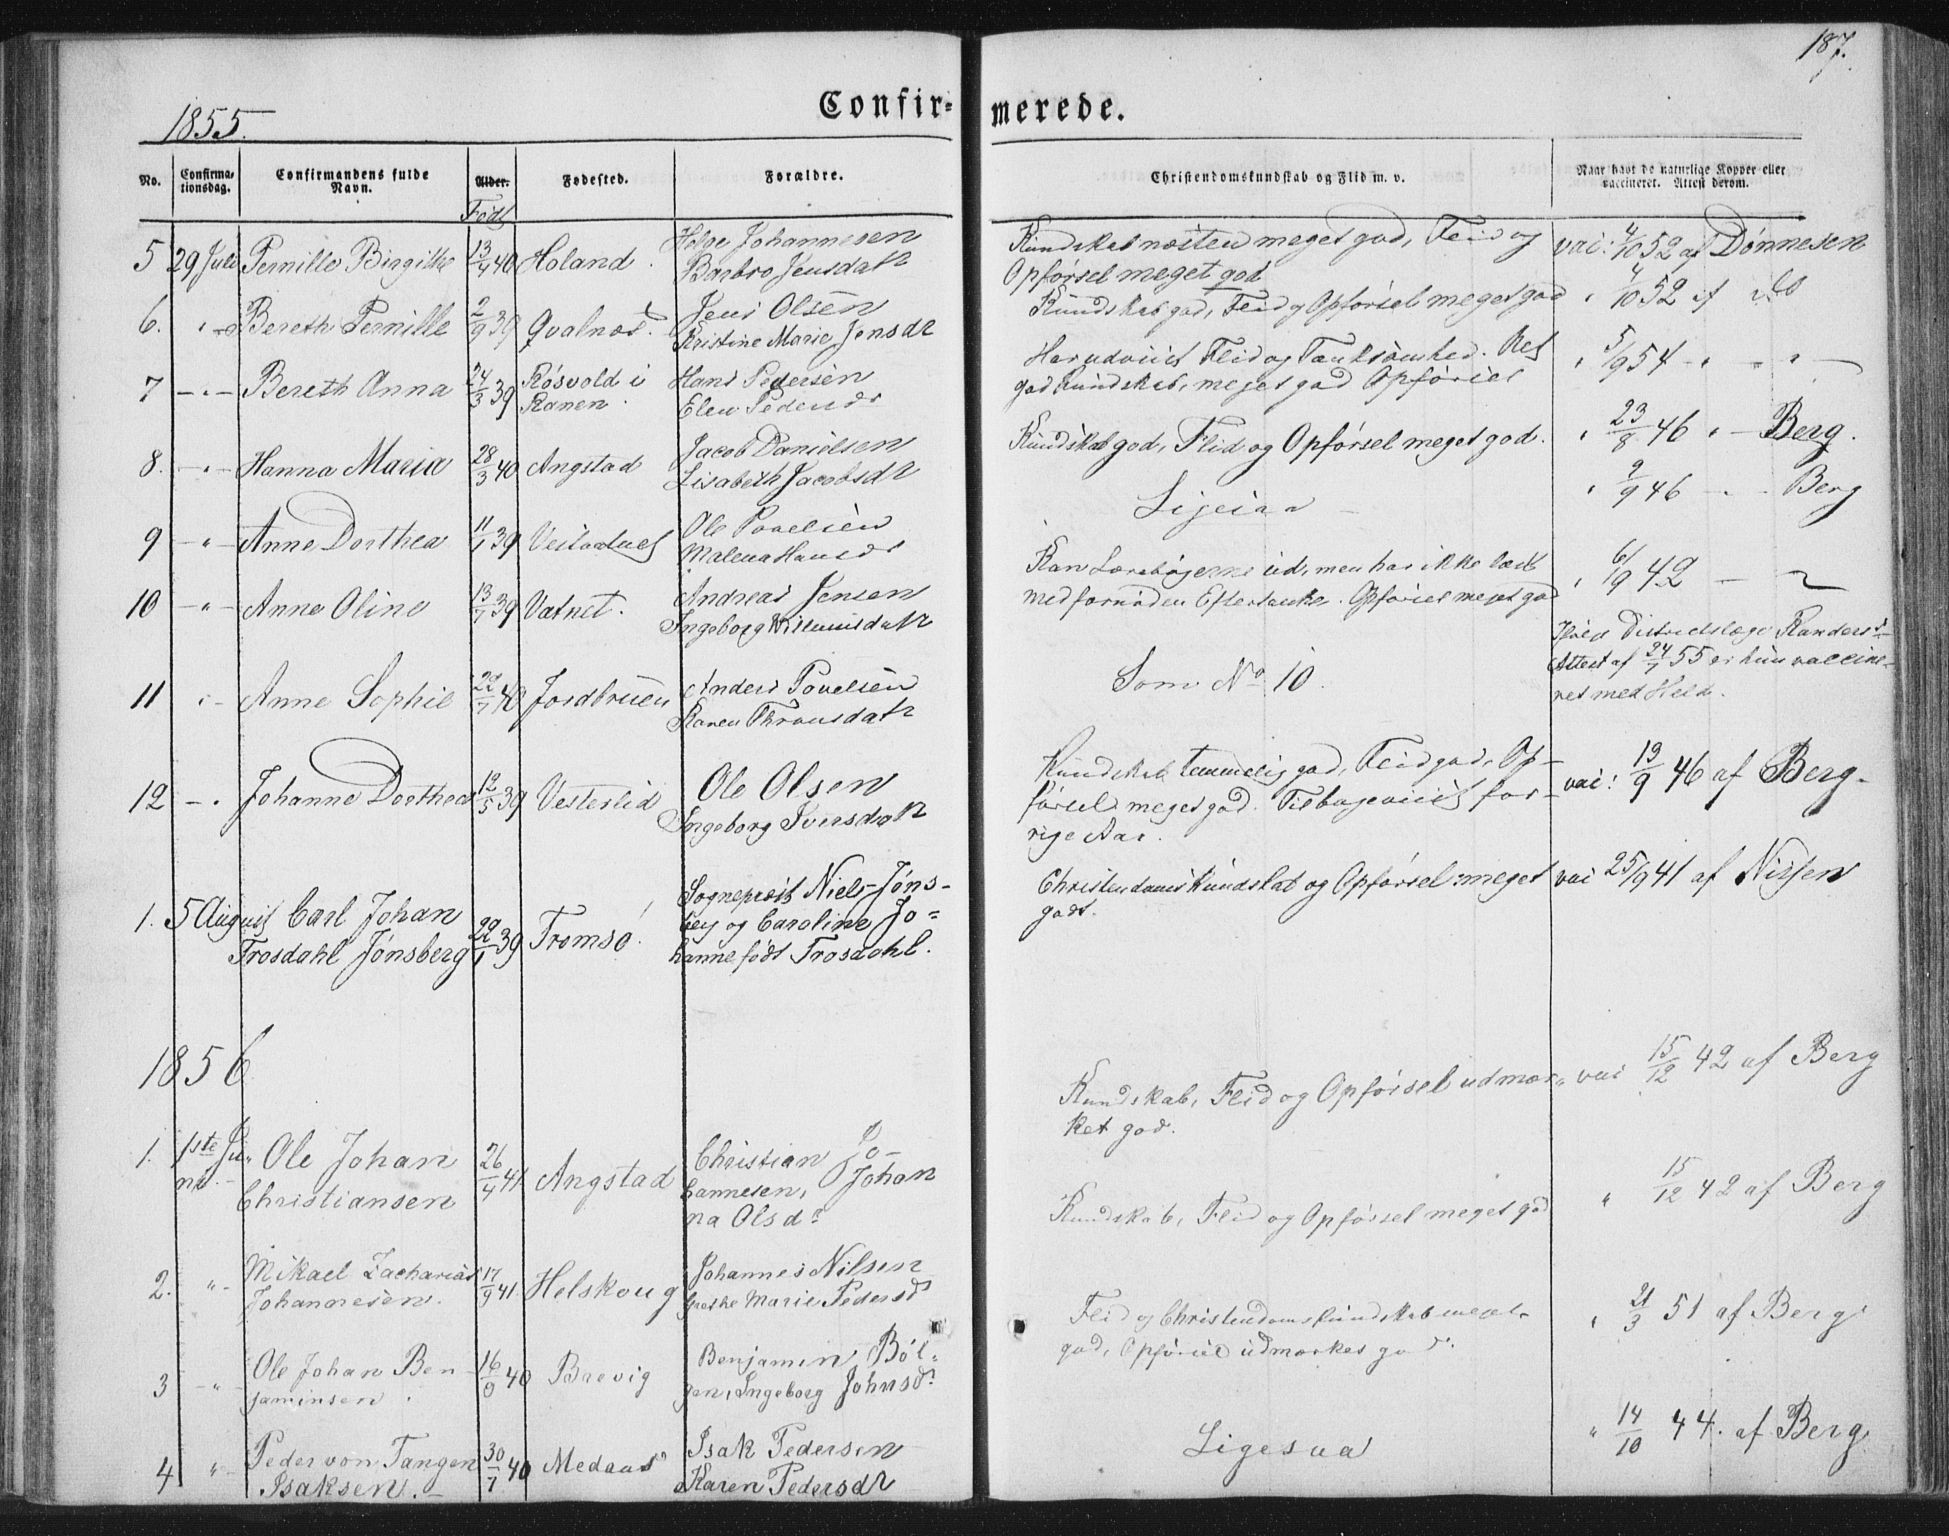 187.
1855.
Confir- merede.
No. Confirma-tionsdag. Confirmandens fulde Navn. Alder. Fødested. Forældre. Christendomskundskab og Flid m. v. Naar havt de naturlige Kopper eller vaccineret. Attest derom.
Født
5 29 Juli Pernille Birgitte 13/4 40 Holand.
Helge Johannesen
Barbro Jensdatr
Kundskab næsten meget god, Flid og
Opførsel meget god
vac: 4/10 52 af Dønnesen
6. " Bereth Pernille 2/9 39 Qvalnæs.
Jens Olsen
Kristine Marie Jensdr
Kundskab god, Flid og Opførsel meget god
" 4/10 52 af do
7 - " - Bereth Anna 24/3 39 Røsvold i
Ranen.
Hans Pedersen
Elen Pedersdr
Har udviist Flid og Tænksomhed. Ret
god Kundskab, meget god Opførsel
" 5/9 54 - " - " -
8. - " - Hanna Maria 28/3 40 Angstad
Jacob Danielsen
Lisabeth Jacobsdr
Kundskab god, Flid og Opførsel meget god.
" 23/8 46 " - Berg.
9 - " - Anne Dorthea 11/1 39
Ole Povelsen
Malena Hansdr
Ligesaa -
" 2/9 46 - - Berg
10 - " - Anne Oline 13/7 39 Vatnet.
Andreas Jensen
Ingeborg Willumsdatr
Kan Lærebøgerne ud, men har ikke læst
med fornøden Eftertanke. Opførsel meget god
" 6/9 42 - "
11 " - Anne Sophie 22/7 40 Jordbruen
Anders Povelsen
Karen Thronsdatr
Som No 10.
Districtslæge Randers's
Attest af 24/7 55 er hun vaccine-
ret med Held.
12 - " Johanne Dorthea 12/5 39 Vesterlid
Ole Olsen
Ingeborg Iversdatr
Kundskab temmelig god, Flid god, Op-
førsel meget god. Tilbageviist for-
rige Aar.
vac: 19/9 46 af Berg.
1. 5 August Carl Johan
Trosdahl Jønsberg 22/1 39 Tromsø.
Sognepræst Niels Jøns-
berg og Caroline Jo-
hanne født Trosdahl.
Christendomskundskab og Opførsel meget
godt.
vac 25/9 41 af Nissen
1856
1. 1ste Ju-
ni. Ole Johan
Christiansen 26/4 41 Angstad
Christian Jo-
hannesen, Johan
na Olsdr
Kundskab, Flid og Opførsel udmær-
ket god.
vac 15/12 42 af Berg
2. " - Mikael Zacharias
Johannesen. 17/9 41 Helskoug
Johannes Nilsen
Marie Pedersd
Kundskab, Flid og Opførsel meget god
" 15/12 42 af Berg
3 - " - Ole Johan Ben-
jaminsen. 16/9 40 Brevig
Benjamin Bøl-
gen, Ingeborg Johnsdr
Flid og Christendomskundskab meget
god, Opførsel udmærket god.
" 21/3 51 af Berg
4 " - Peder von Tangen
Isaksen. - 30/7 40 Medaas
Isak Pedersen
Karen Pedersdr
Ligesaa
" 14/10 44. af Berg